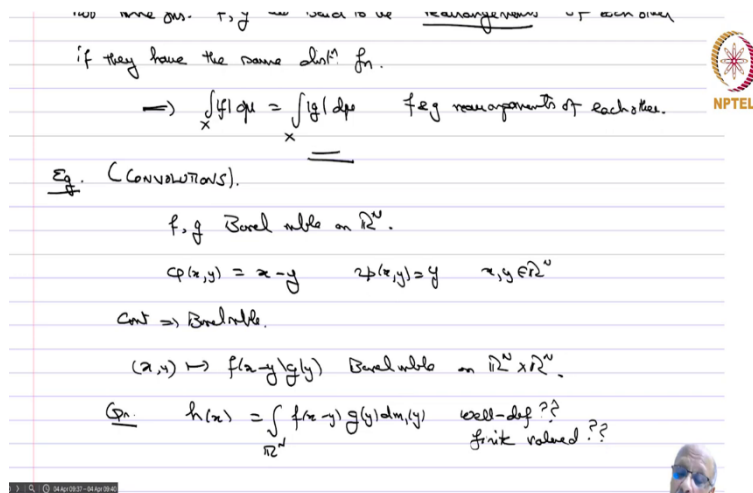 two mble fns. f, g are said to be rearrangements of each other
if they have the same distⁿ. fn.
⇒ ∫_X |f| dμ = ∫_X |g| dμ f & g rearrangements of each other.
NPTEL
Eg. (CONVOLUTIONS).
f, g Borel mble on ℝᴺ.
φ(x,y) = x-y ψ(x,y) = y x, y ∈ ℝᴺ
Cont ⇒ Borel mble.
(x,y) ↦ f(x-y)g(y) Borel mble on ℝᴺ × ℝᴺ.
Qn. h(x) = ∫_ℝᴺ f(x-y) g(y) dm,(y) well-def ??
finite valued ??
04 Apr 09:37 - 04 Apr 09:40